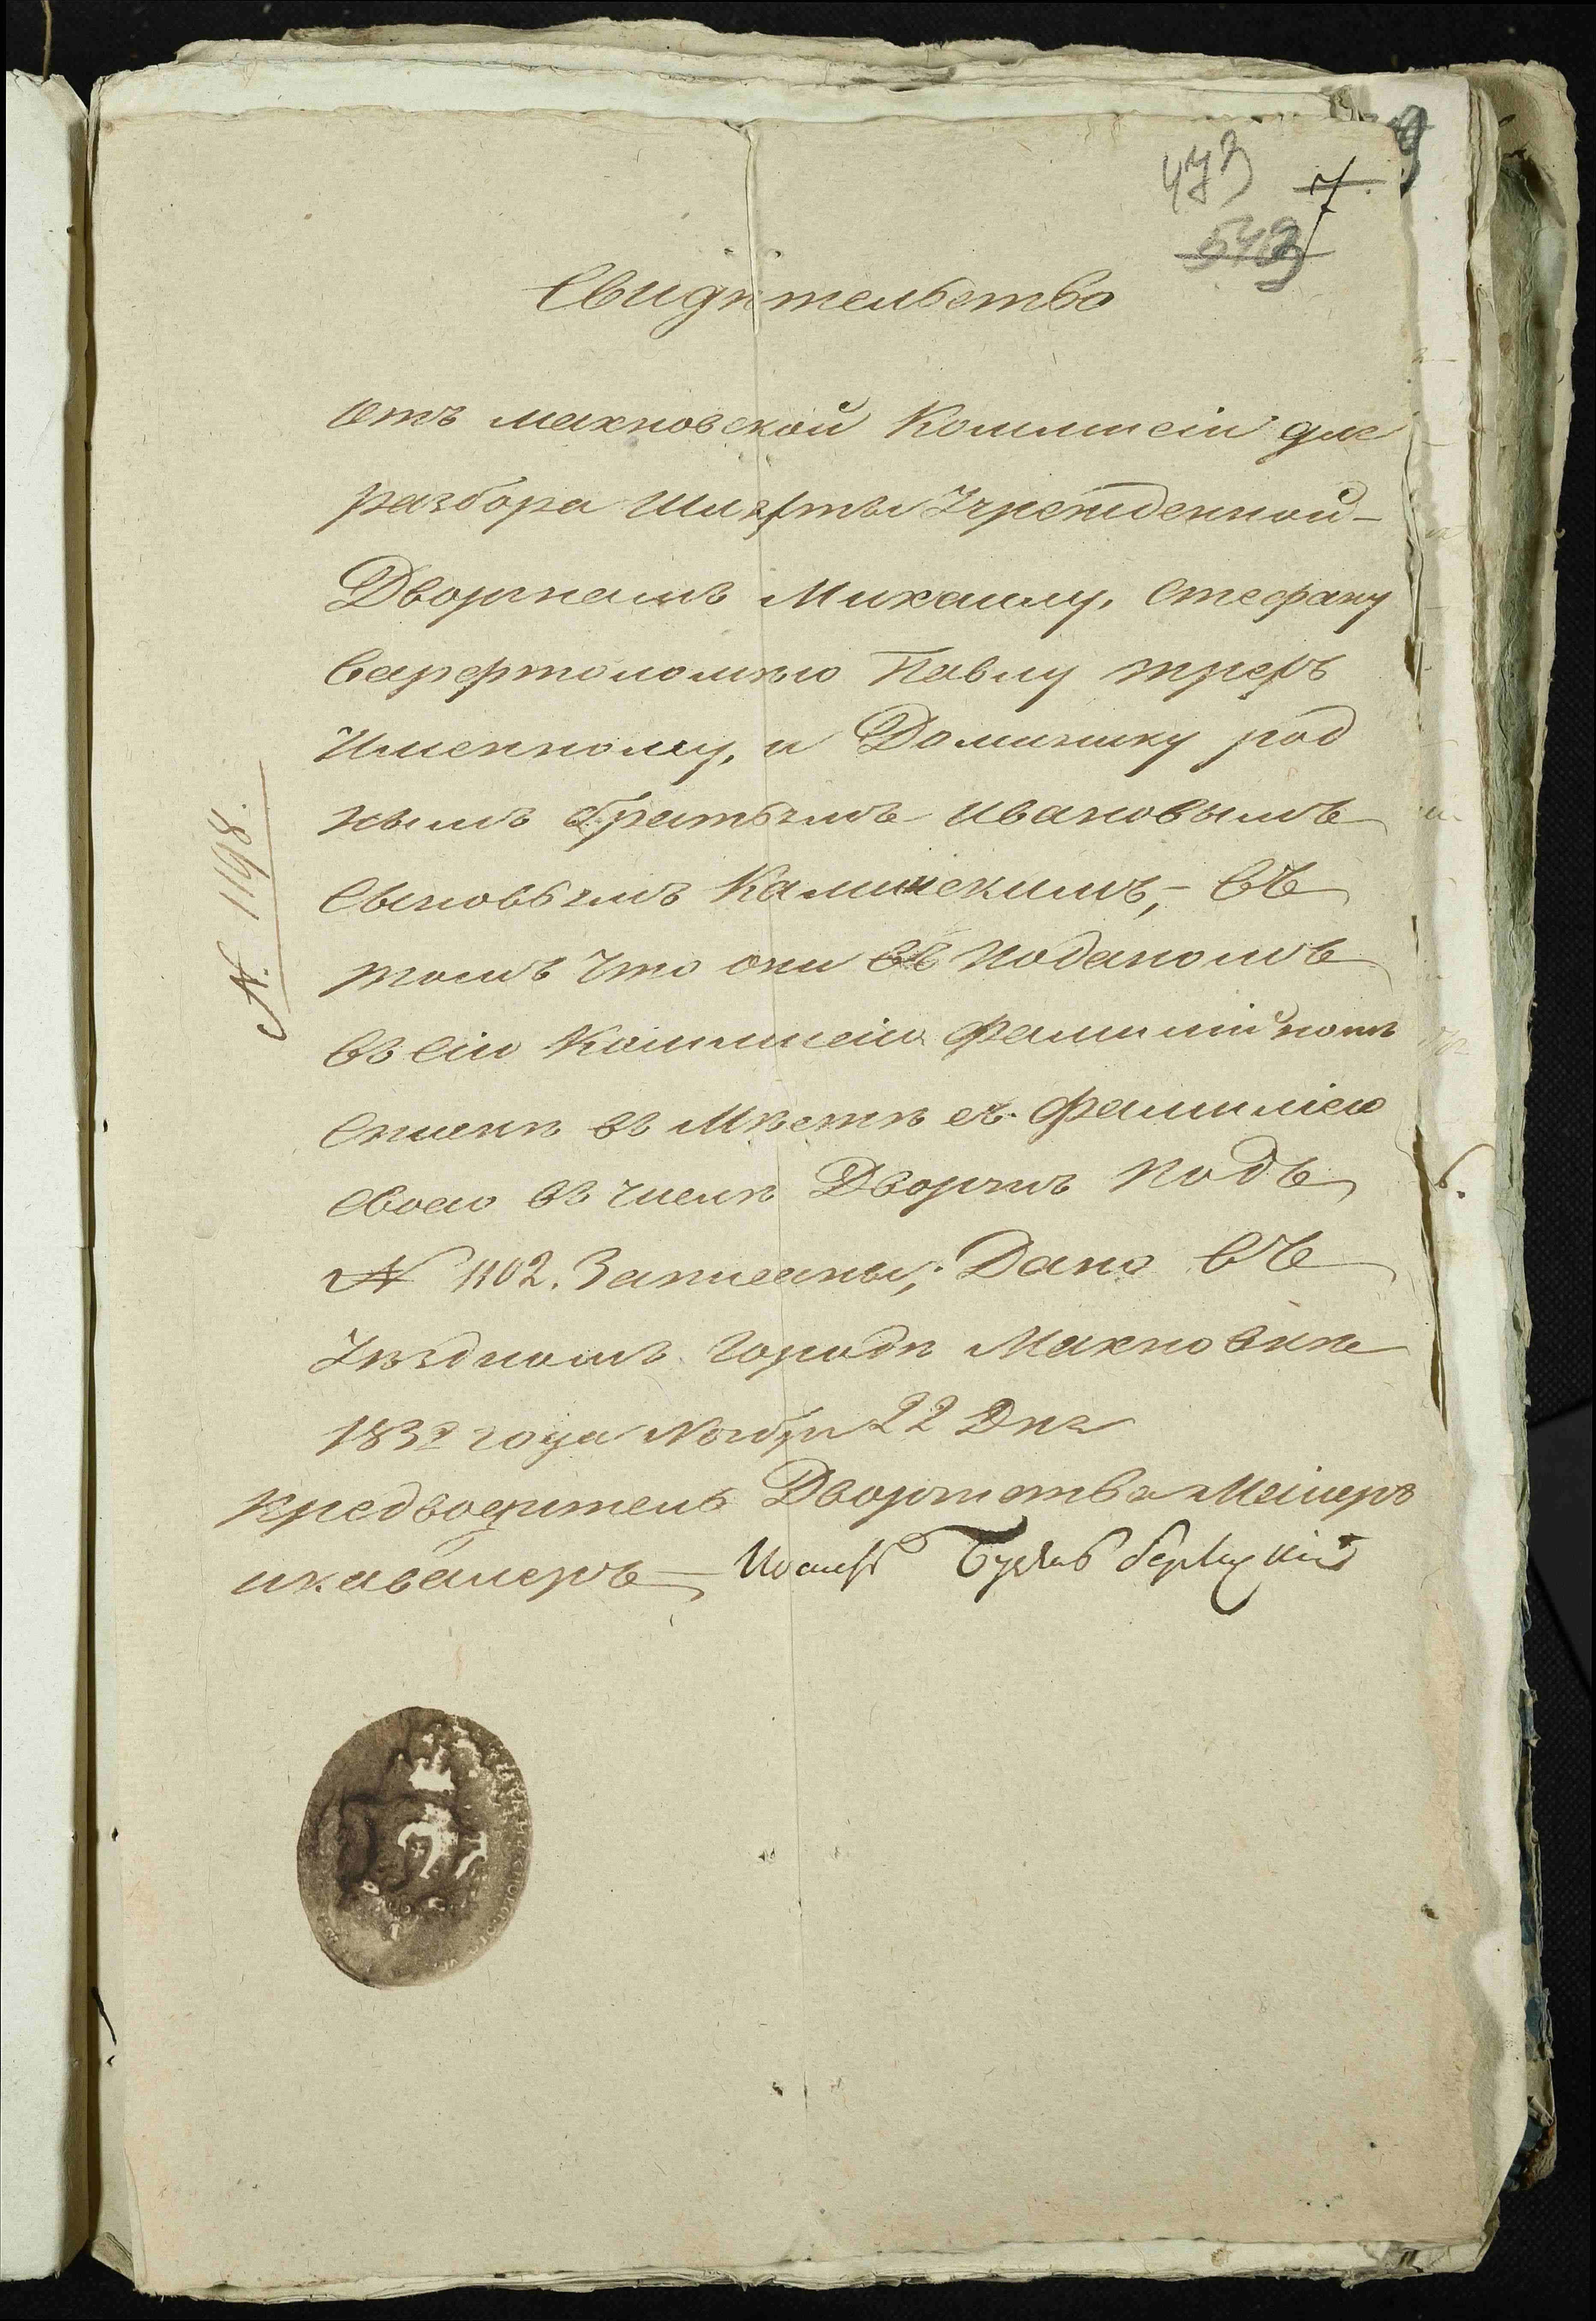 473
7
9
543
Свидѣтельство
отъ махновской Коммисіи для
разбора Шляхты Учрежденной –
Дворянамъ Михаилу, Стефану
Варфтоломѣю Павлу трехъ
Именному, и Доминику род
нымъ братьямъ ивановымъ
Сыновьямъ Калинскимъ, – въ
томъ что они въ поданомъ
въ сію Коммисію Фамилій номъ
Спискѣ въ Мѣстѣ съ Фамиліею
своею въ числѣ Дворянъ подъ
N 1102. Записаны; Дано въ
Уѣздномъ городѣ Махновке
183 года Ноября 22 Дня
Предводитель Дворянства Маіоръ
икавалеръ Иосифъ
N. 1198.